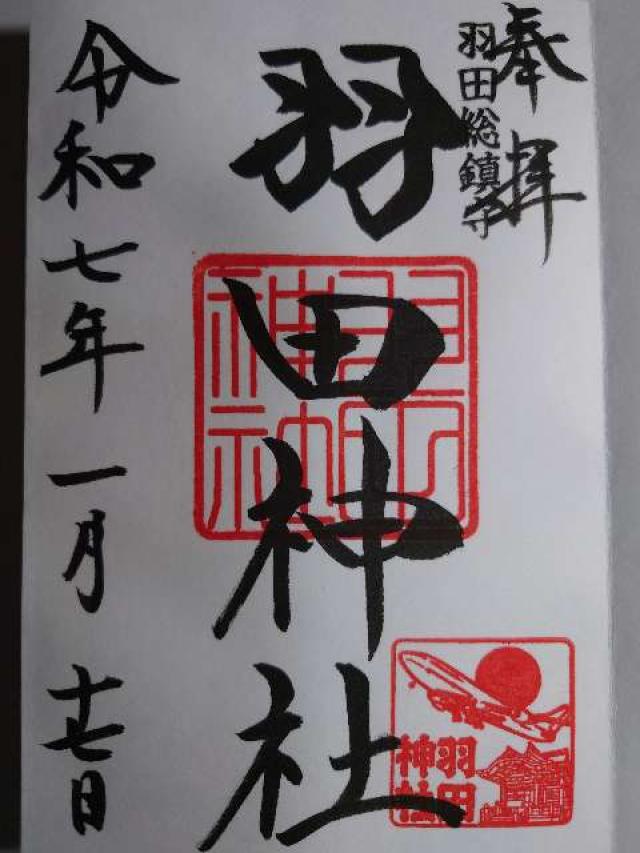 奉拝
羽田総鎮守
羽田神社
羽田神社
令和七年一月十七日